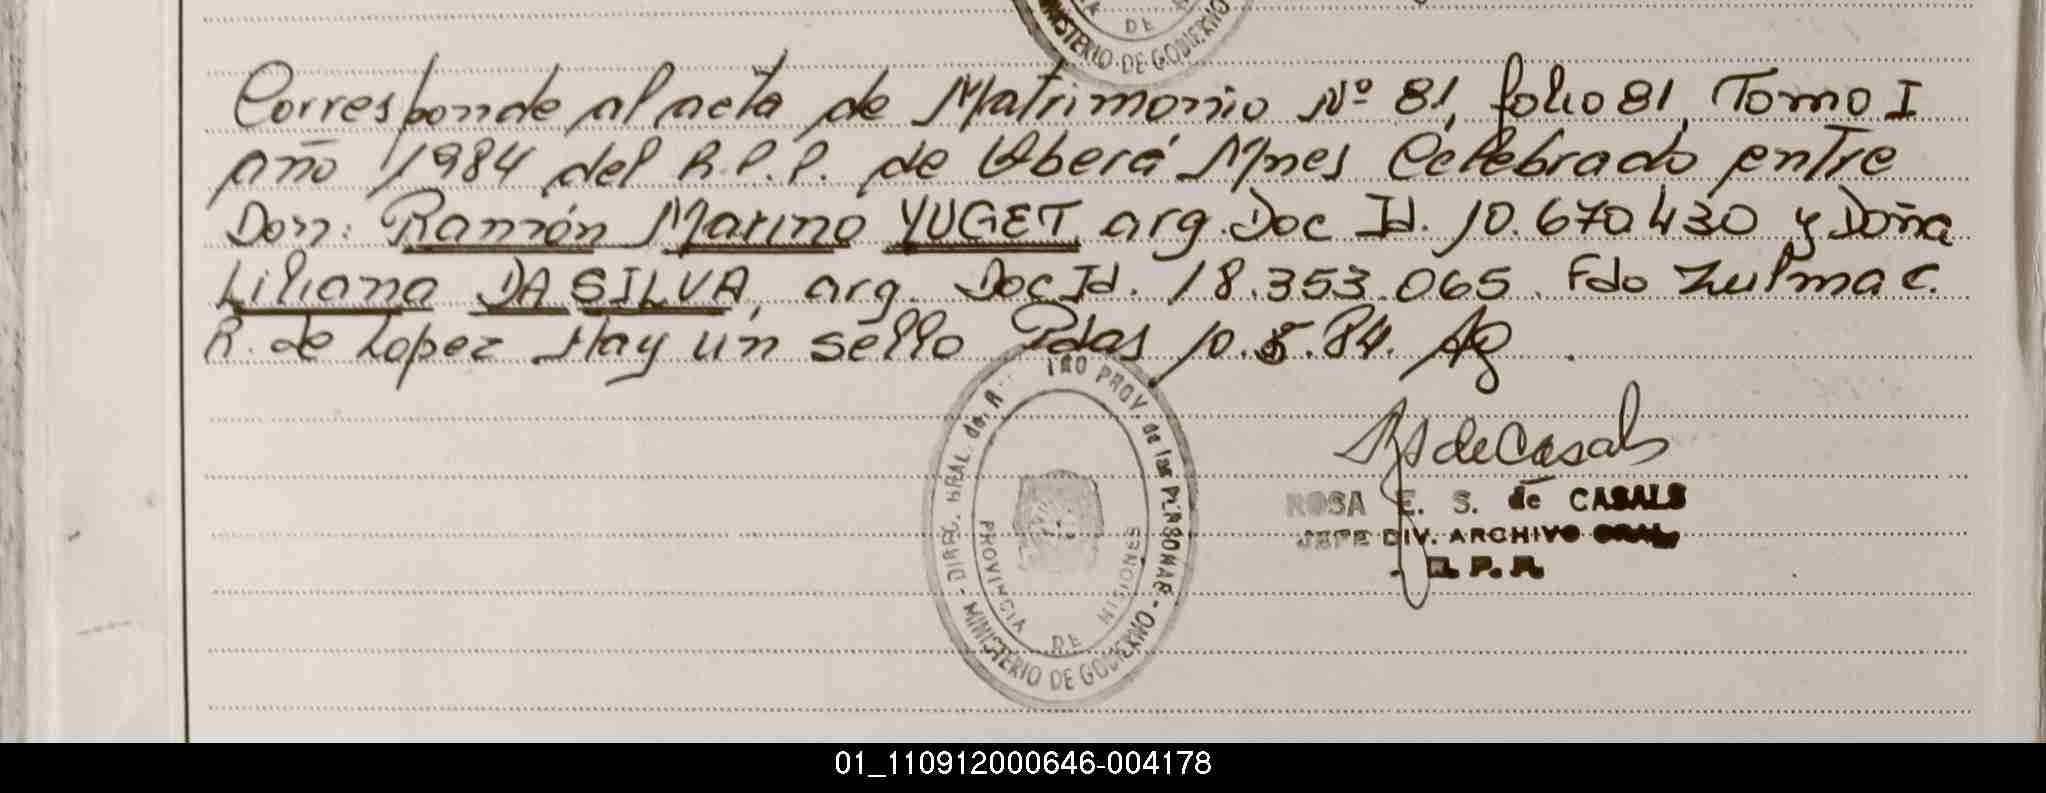 DE
MINISTERIO DE GOBIERNO
Corresponde al acta de Matrimonio Nº 81, folio 81, Tomo I
año 1984 del R.P.P. de Oberá Mnes Celebrado entre
Don: Ramón Marino YUGET arg. Doc Id. 10.670.430 y Doña
Liliana DA SILVA, arg. Doc Id. 18.353.065. Fdo Zulma C.
R. de Lopez Hay un sello Pdas 10.5.84. Ag.
DIREC. GRAL. del TRO PROV. de las PERSONAS - MINISTERIO DE GOBIERNO -
PROVINCIA DE MISIONES
RS de Casals
ROSA E. S. de CASALS
JEFE DIV. ARCHIVO GRAL.
R. P. P.
01_110912000646-004178